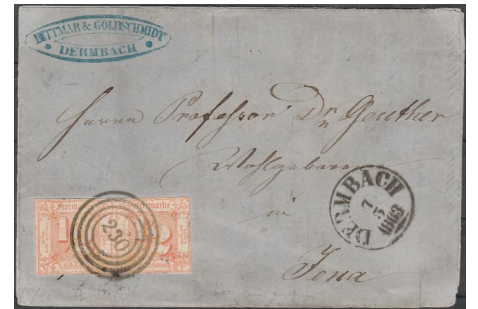 DITTMAR & GOLDSCHMIDT
DERMBACH
Herrn Professor Dr Geuther
Wohlgeboren
in
Jena
DERMBACH
7
5
1863
230